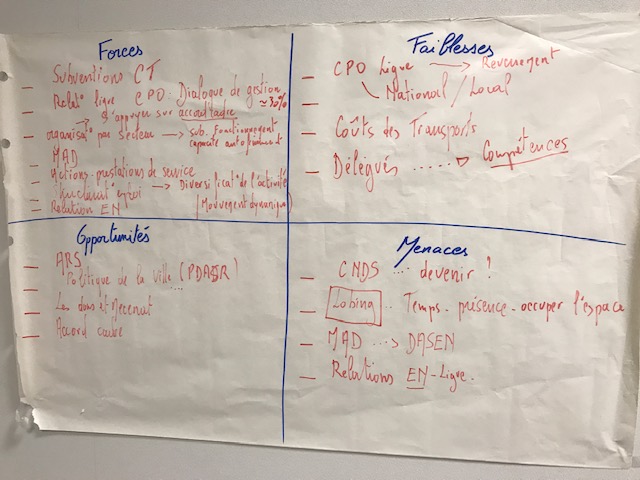 Forces
- Subventions CT
- Relat° ligue CPO. Dialogue de gestion ≈30%
→ s'appuyer sur accord cadre
- organisat° par secteur → sub. fonctionnement
capacité autoproduct
- MAD
- Actions-prestations de service
- emploi → Diversificat° de l'activité
- Relation EN (Mouvement dynamique)
Faiblesses
- CPO Ligue → Reversement
- National / Local
- Coûts des Transports
- Délégués ......→ Compétences
Opportunités
- ARS
- Politique de la ville (PDASR)
- Les dons et Mecenat
- Accord cadre
Menaces
- CNDS .... devenir !
- Lobing .. Temps - présence - occuper l'espace
- MAD ...> DASEN
- Relations EN - Ligue.